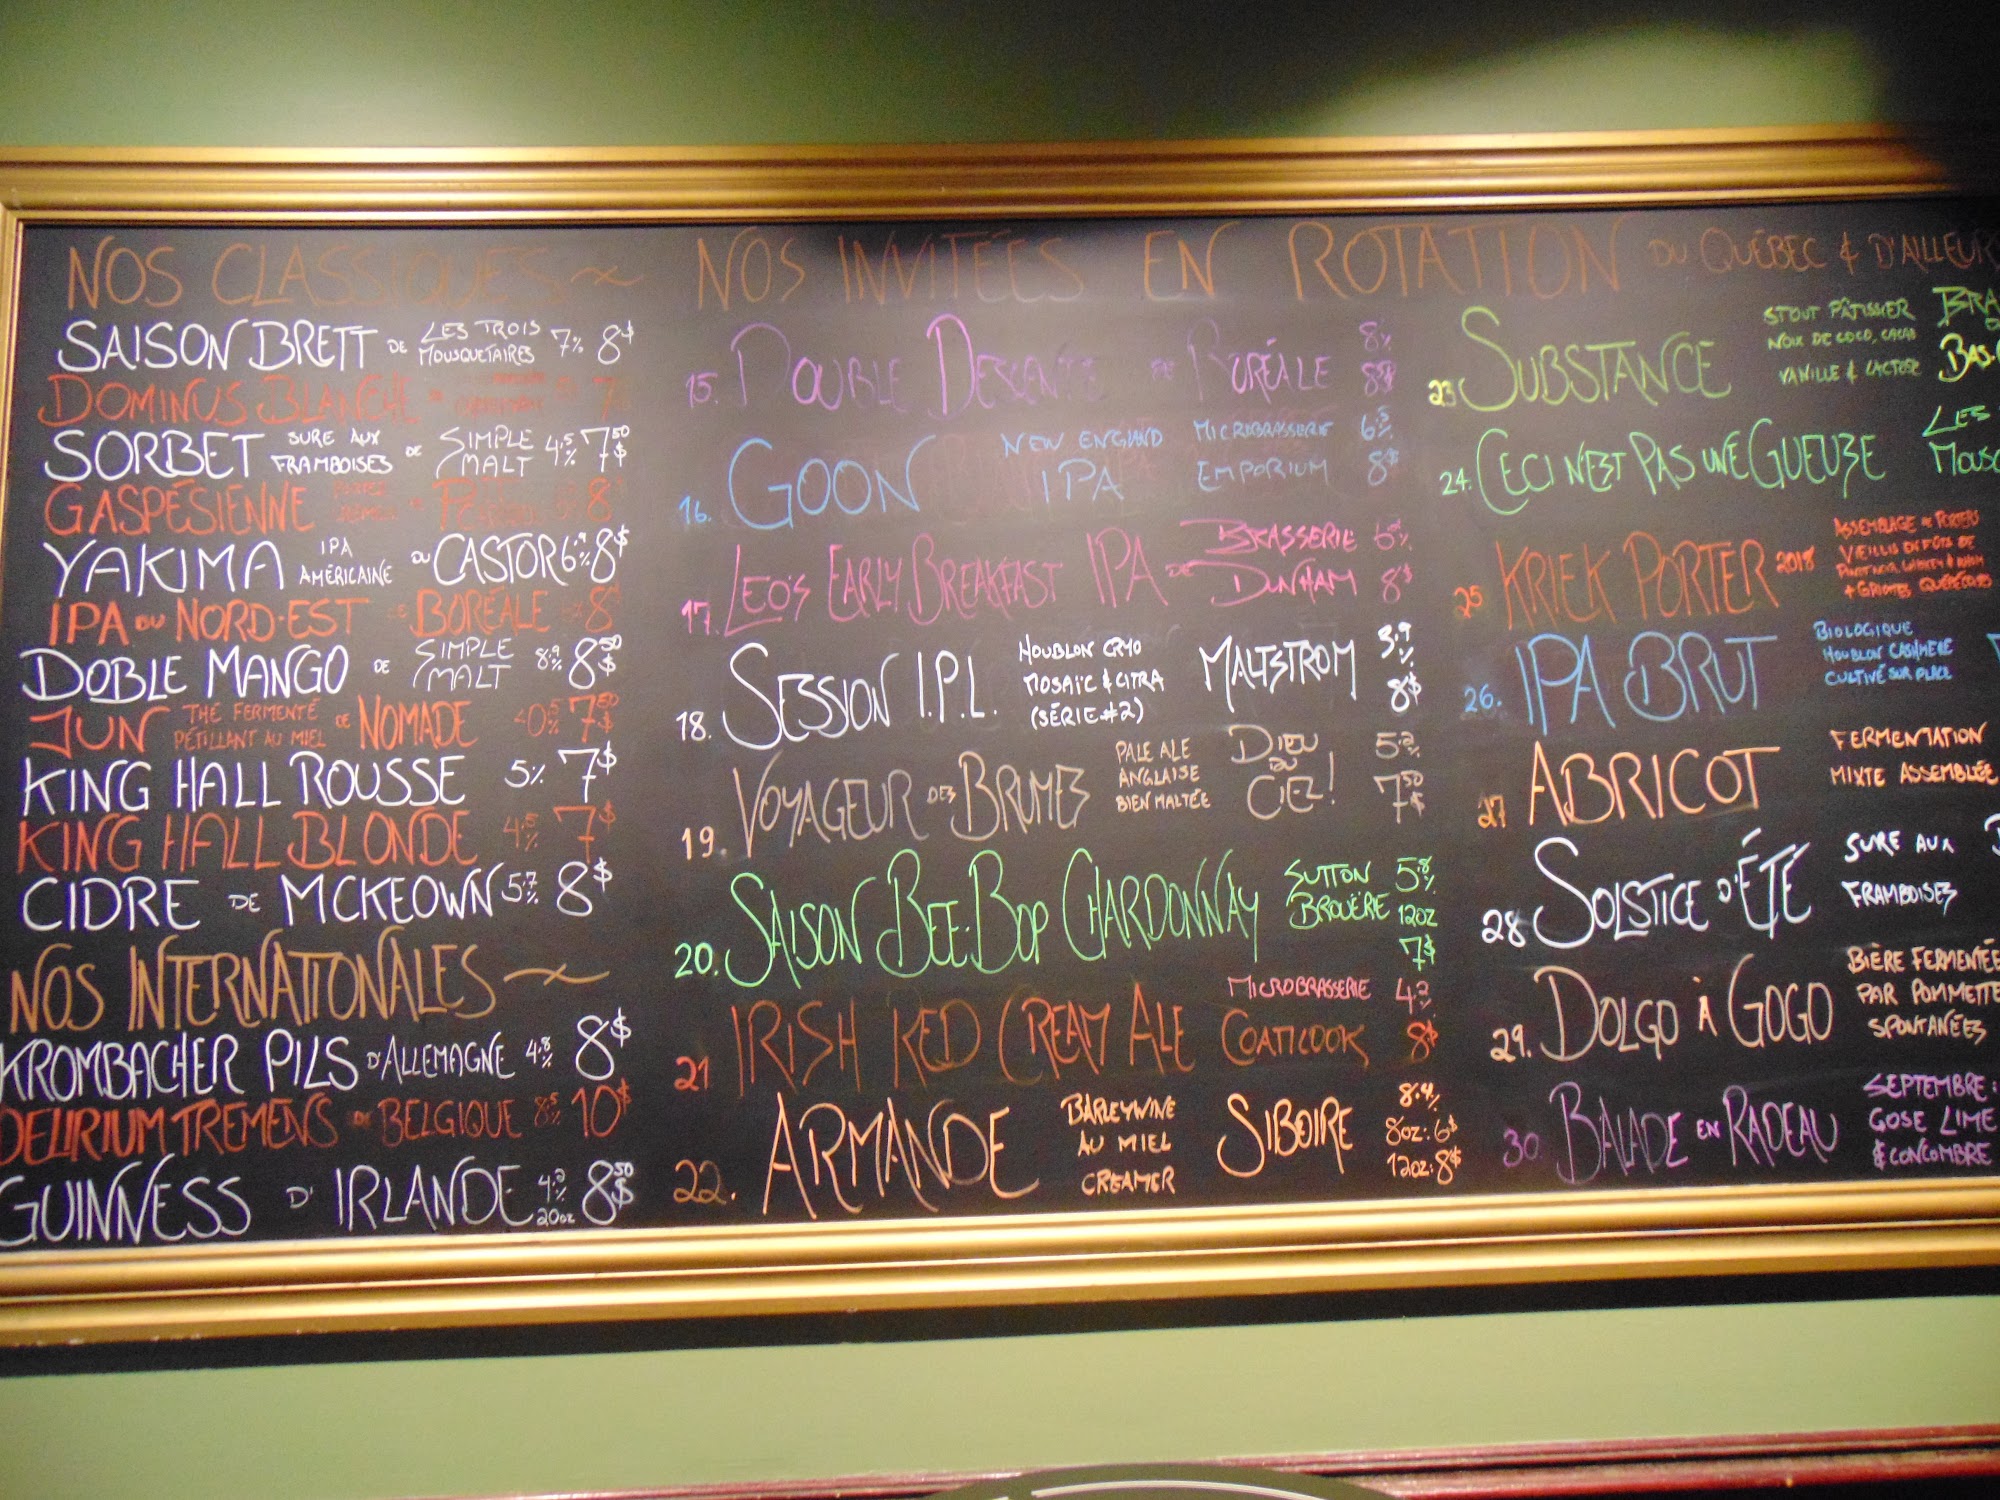 NOS CLASSIQUES ~
SAISON BRETT DE LES TROIS MOUSQUETAIRES 7% 8$
DOMINUS BLANCHE 7
SORBET SURE AUX FRAMBOISES DE SIMPLE MALT 4.5% 7.50$
GASPÉSIENNE 8
YAKIMA IPA AMÉRICAINE DU CASTOR 6.9% 8$
IPA DU NORD-EST DE BORÉALE 8
DOBLE MANGO DE SIMPLE MALT 8.9% 8.50$
JUN THÉ FERMENTÉ PÉTILLANT AU MIEL DE NOMADE 7.50$
KING HALL ROUSSE 5% 7$
KING HALL BLONDE 4.5% 7$
CIDRE DE MCKEOWN 5.7% 8$
NOS INTERNATIONALES ~
KROMBACHER PILS D'ALLEMAGNE 4.8% 8$
DELIRIUM TREMENS DE BELGIQUE 8.5% 10$
GUINNESS D'IRLANDE 4.2% 20oz 8.50$
NOS INVITÉES EN ROTATION DU QUÉBEC & D'AILLEUR
15. DOUBLE DESCENTE DE BORÉALE 8%
16. GOON NEW ENGLAND IPA MICROBRASSERIE EMPORIUM 6.5% 8$
17. LEO'S EARLY BREAKFAST IPA DE BRASSERIE DUNHAM 8$
18. SESSION I.P.L. HOUBLON CRYO MOSAÏC & CITRA (SÉRIE #2) MALTSTROM 3.9% 8$
19. VOYAGEUR DES BRUMES PALE ALE ANGLAISE BIEN MALTÉE DIEU DU CIEL! 5.2% 7.50$
20. SAISON BEE-BOP CHARDONNAY SUTTON BROUËRIE 5.8% 12oz 7$
21 IRISH RED CREAM ALE MICROBRASSERIE COATICOOK 4.2% 8$
22. ARMANDE BARLEYWINE AU MIEL CREAMER SIBOIRE 8.4% 8oz: 6$ 12oz: 8$
23 SUBSTANCE STOUT PÂTISSIER NOIX DE COCO, CACAO VANILLE & LACTOSE BRA BAS.
24. CECI N'EST PAS UNE GUEUZE LES MOUS
25 KRIEK PORTER 2018 ASSEMBLAGE DE PORTERS VIEILLIS EN FÛTS DE PINOT NOIR, WHISKY & RHUM + GRIOTTES QUÉBÉCOISES
26. IPA BRUT BIOLOGIQUE HOUBLON CASHMERE CULTIVÉ SUR PLACE
27 ABRICOT FERMENTATION MIXTE ASSEMBLÉE
28 SOLSTICE D'ÉTÉ SURE AUX FRAMBOISES
29. DOLGO À GOGO BIÈRE FERMENTÉE PAR POMMETTE SPONTANÉES
30. BALADE EN RADEAU SEPTEMBRE: GOSE LIME & CONCOMBRE